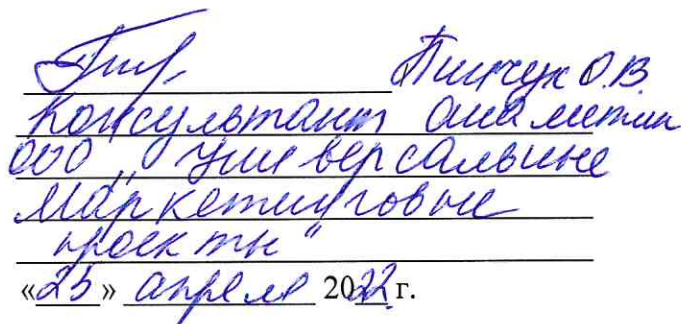 Пинчук О.В.
консультант аналитик
ООО „Универсальные
маркетинговые
проекты"
«25» апреля 2022 г.